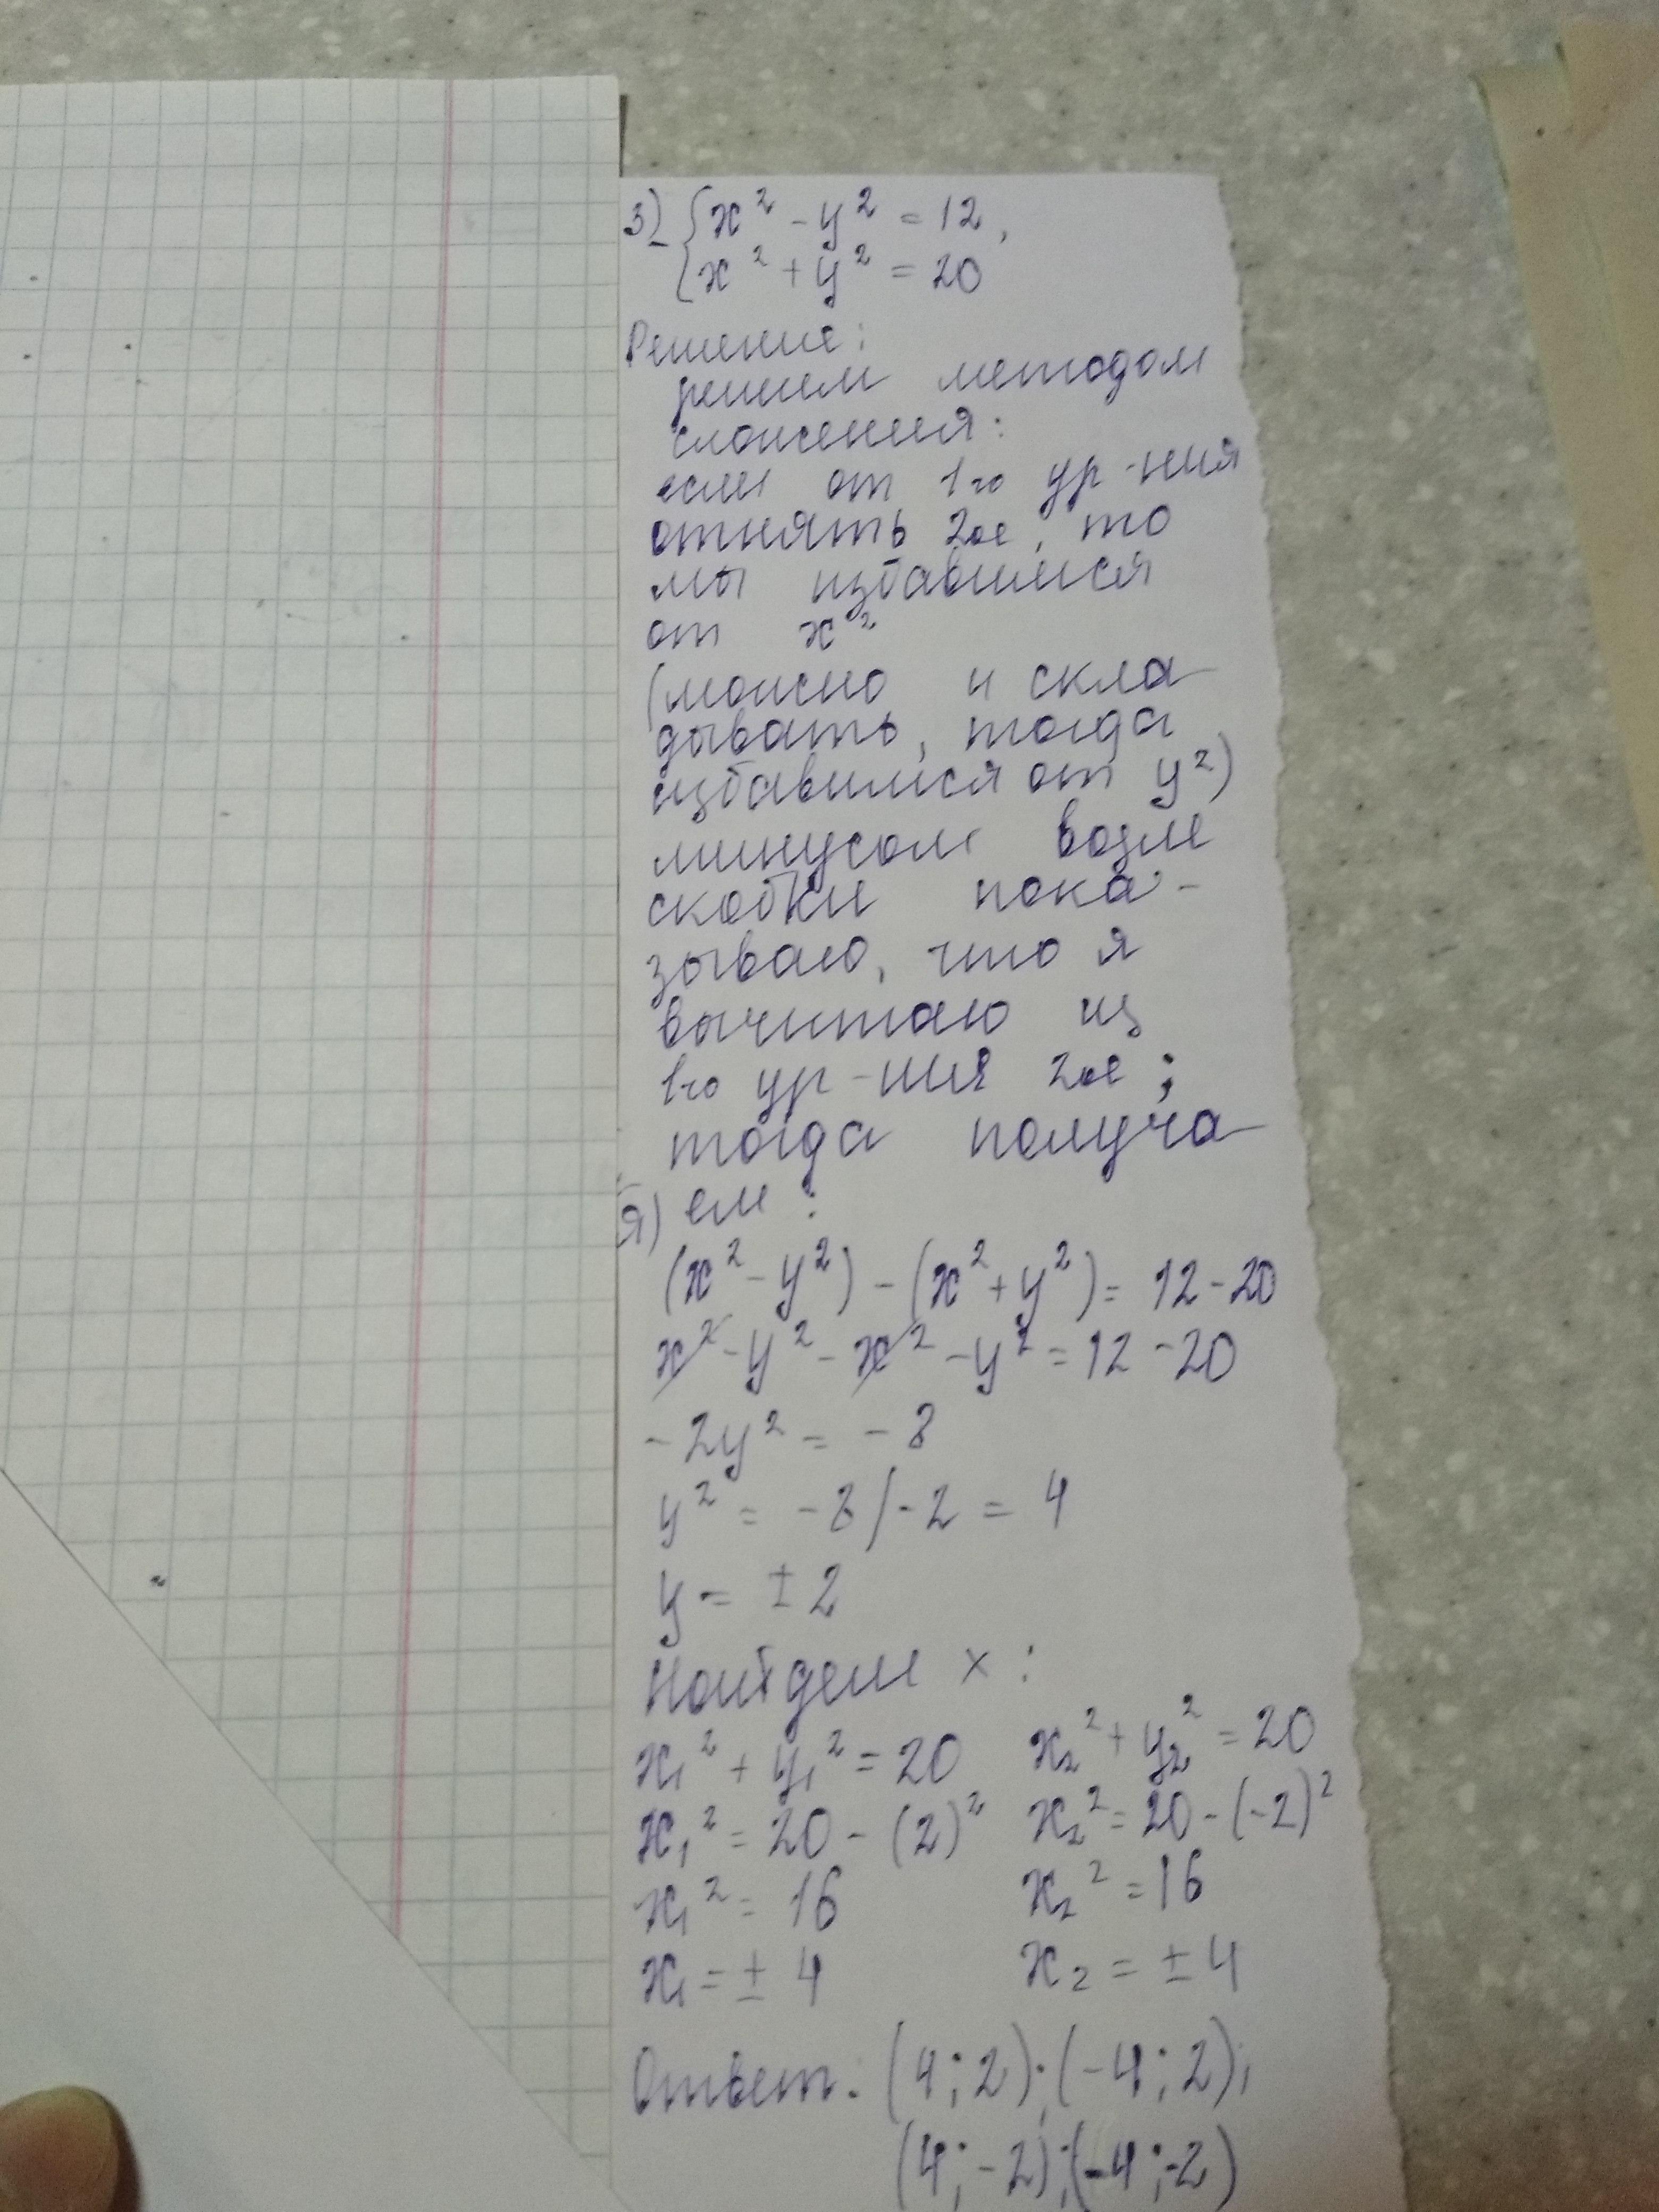 3) { x² - y² = 12,
{ x² + y² = 20
Решение:
решим методом
сложения:
если от 1го ур-ния
отнять 2ое, то
мы избавимся
от x²
(можно и скла
дывать, тогда
избавимся от y²)
минусом возле
скобки пока-
зываю, что я
вычитаю из
1го ур-ния 2ое;
тогда получа
ем:
(x² - y²) - (x² + y²) = 12 - 20
x² - y² - x² - y² = 12 - 20
- 2y² = - 8
y² = - 8 / - 2 = 4
y = ± 2
Найдем x:
x₁² + y₁² = 20 x₂² + y₂² = 20
x₁² = 20 - (2)² x₂² = 20 - (-2)²
x₁² = 16 x₂² = 16
x₁ = ± 4 x₂ = ± 4
Ответ: (4; 2); (-4; 2);
(4; -2); (-4; -2)